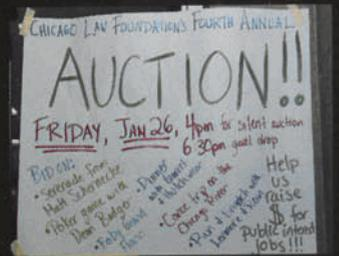 CHICAGO LAW FOUNDATION'S FOURTH ANNUAL
AUCTION!!
FRIDAY, JAN 26, 4pm for silent auction
6:30pm gavel drop
BID ON:
• Serenade from
Matt
• Poker game with
Dean Badger
• Baby Grand
Piano
• Dinner
with
• Canoe trip on the
Chicago River
• Run & with
Help
us
raise
$ for
Public interest
jobs!!!